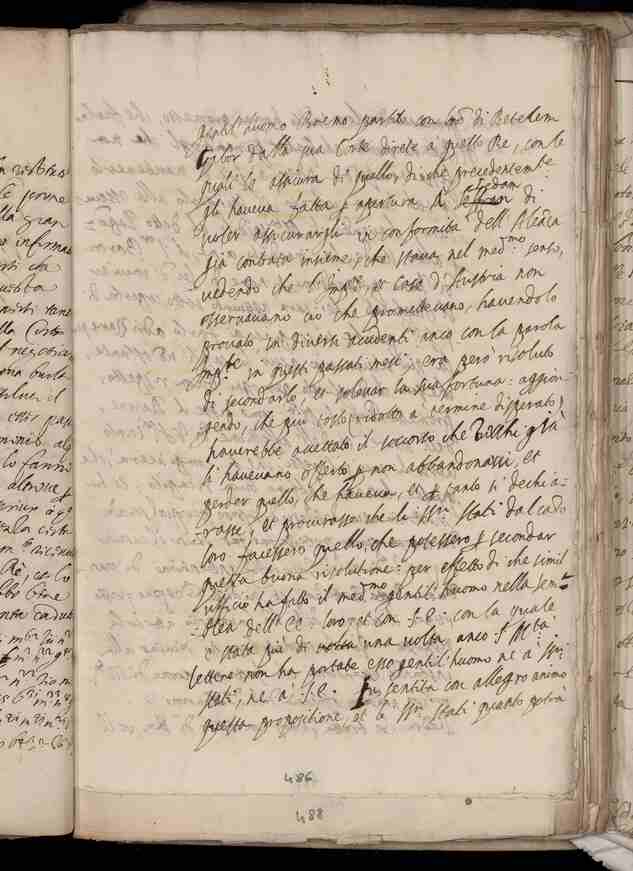 gentil'uomo Boemo partito con l're di Betelem
Gabor dalla sua Corte dirette a quello Re, con le
quali lo assicura di quello, di che precedentemte
gli haveva fatta apertura il di
poter assicurargli in conformità dell'Alleãza
già contrata insieme, che stava nel medmo senso,
vedendo che l'Impre et Casa d'Austria non
osservavano ciò che promettevano, havendolo
provato in diversi accidenti anco con la parola
in questi passati mesi: era però risoluto
di secondarlo, et solevar la sua fortuna: aggion-
gendo, che più tosto, ridotto a termine disperato,
haverebbe accettato il soccorso che Turchi già
li havevano offerto p non abbandonarsi, et
perder quello, che haveva, et p tanto si dechia-
rasse, et procurasse che li ssri Stati dal cãto
loro facessero quello, che potessero p secondar
questa buona risolutione: per effetto di che simil
ufficio ha fatto il medmo gentil'huomo nella
dell' Ce loro, et con S. E. con la quale
è stato già di volta una volta anco S. Mtà
lettere non ha portate esso gentil'huomo ne a' ssri
Stati, ne a' S. E. Fu sentita con allegro animo
questa propositione, et li ssri Stati quanto potrà
486
488